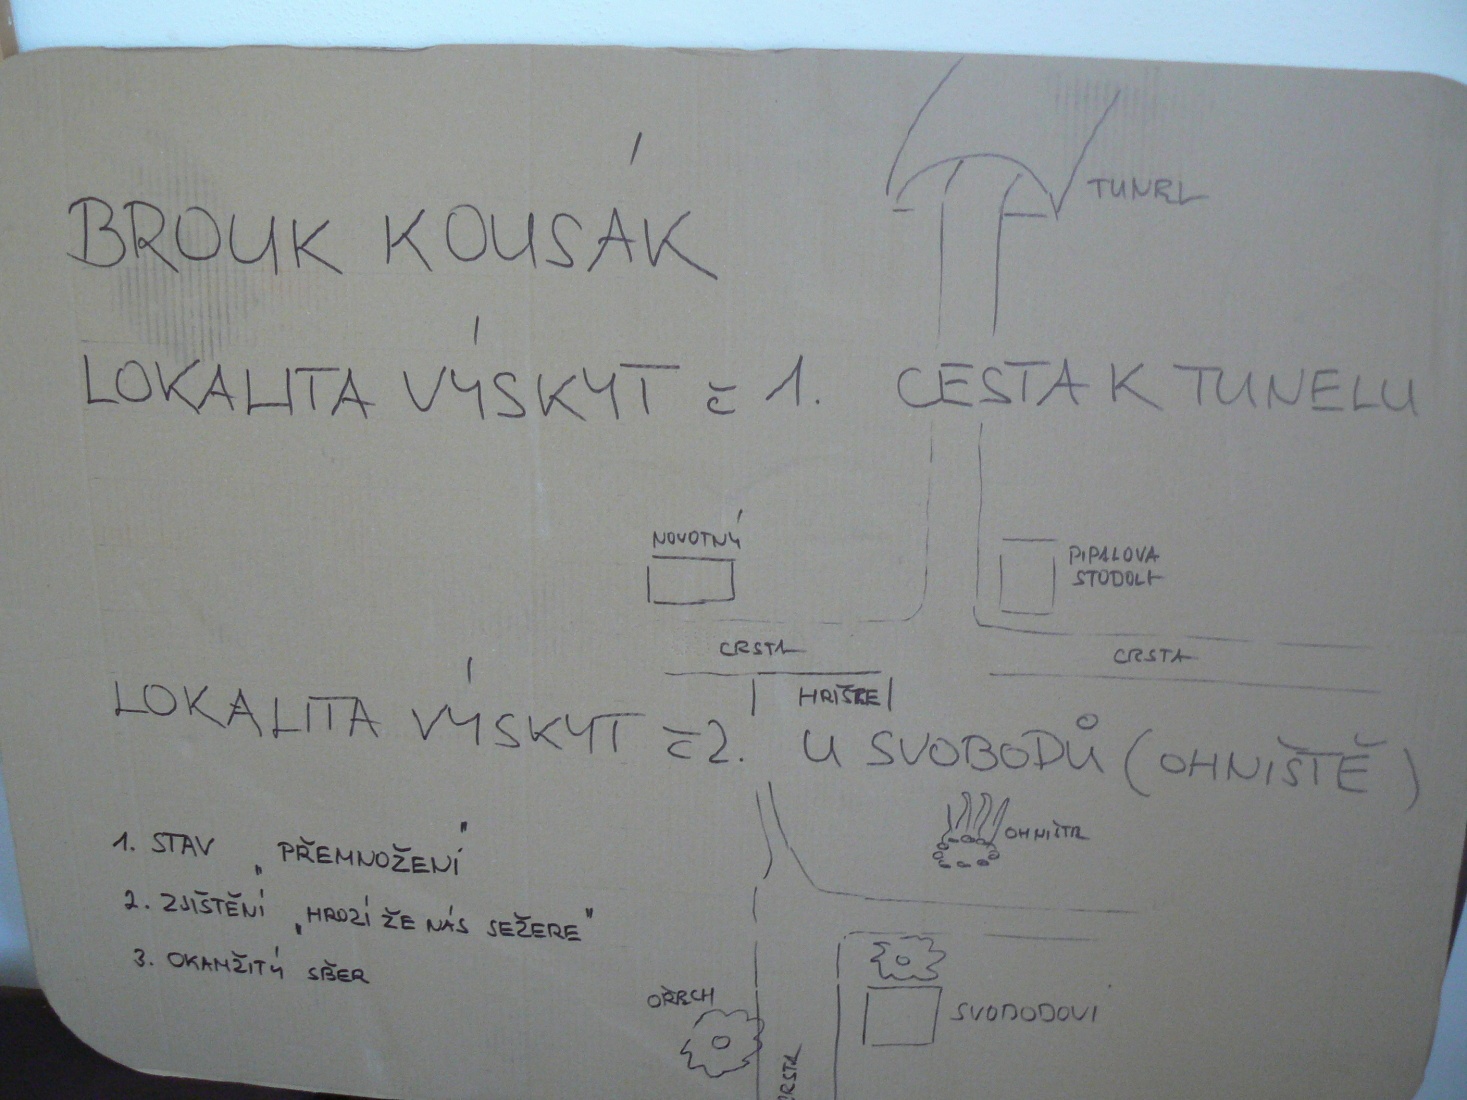 TUNEL
BROUK KOUSÁK
LOKALITA VÝSKYT č 1. CESTA K TUNELU
NOVOTNÝ
PIPALOVA
STODOLA
CESTA
CESTA
HŘIŠTE
LOKALITA VÝSKYT č2. U SVOBODŮ (OHNIŠTĚ)
OHNIŠTE
1. STAV „PŘEMNOŽENÍ"
2. ZJIŠTĚNÍ „HROZÍ ŽE NÁS SEŽERE"
3. OKAMŽITÝ SBĚR
OŘECH
SVOBODOVI
CESTA